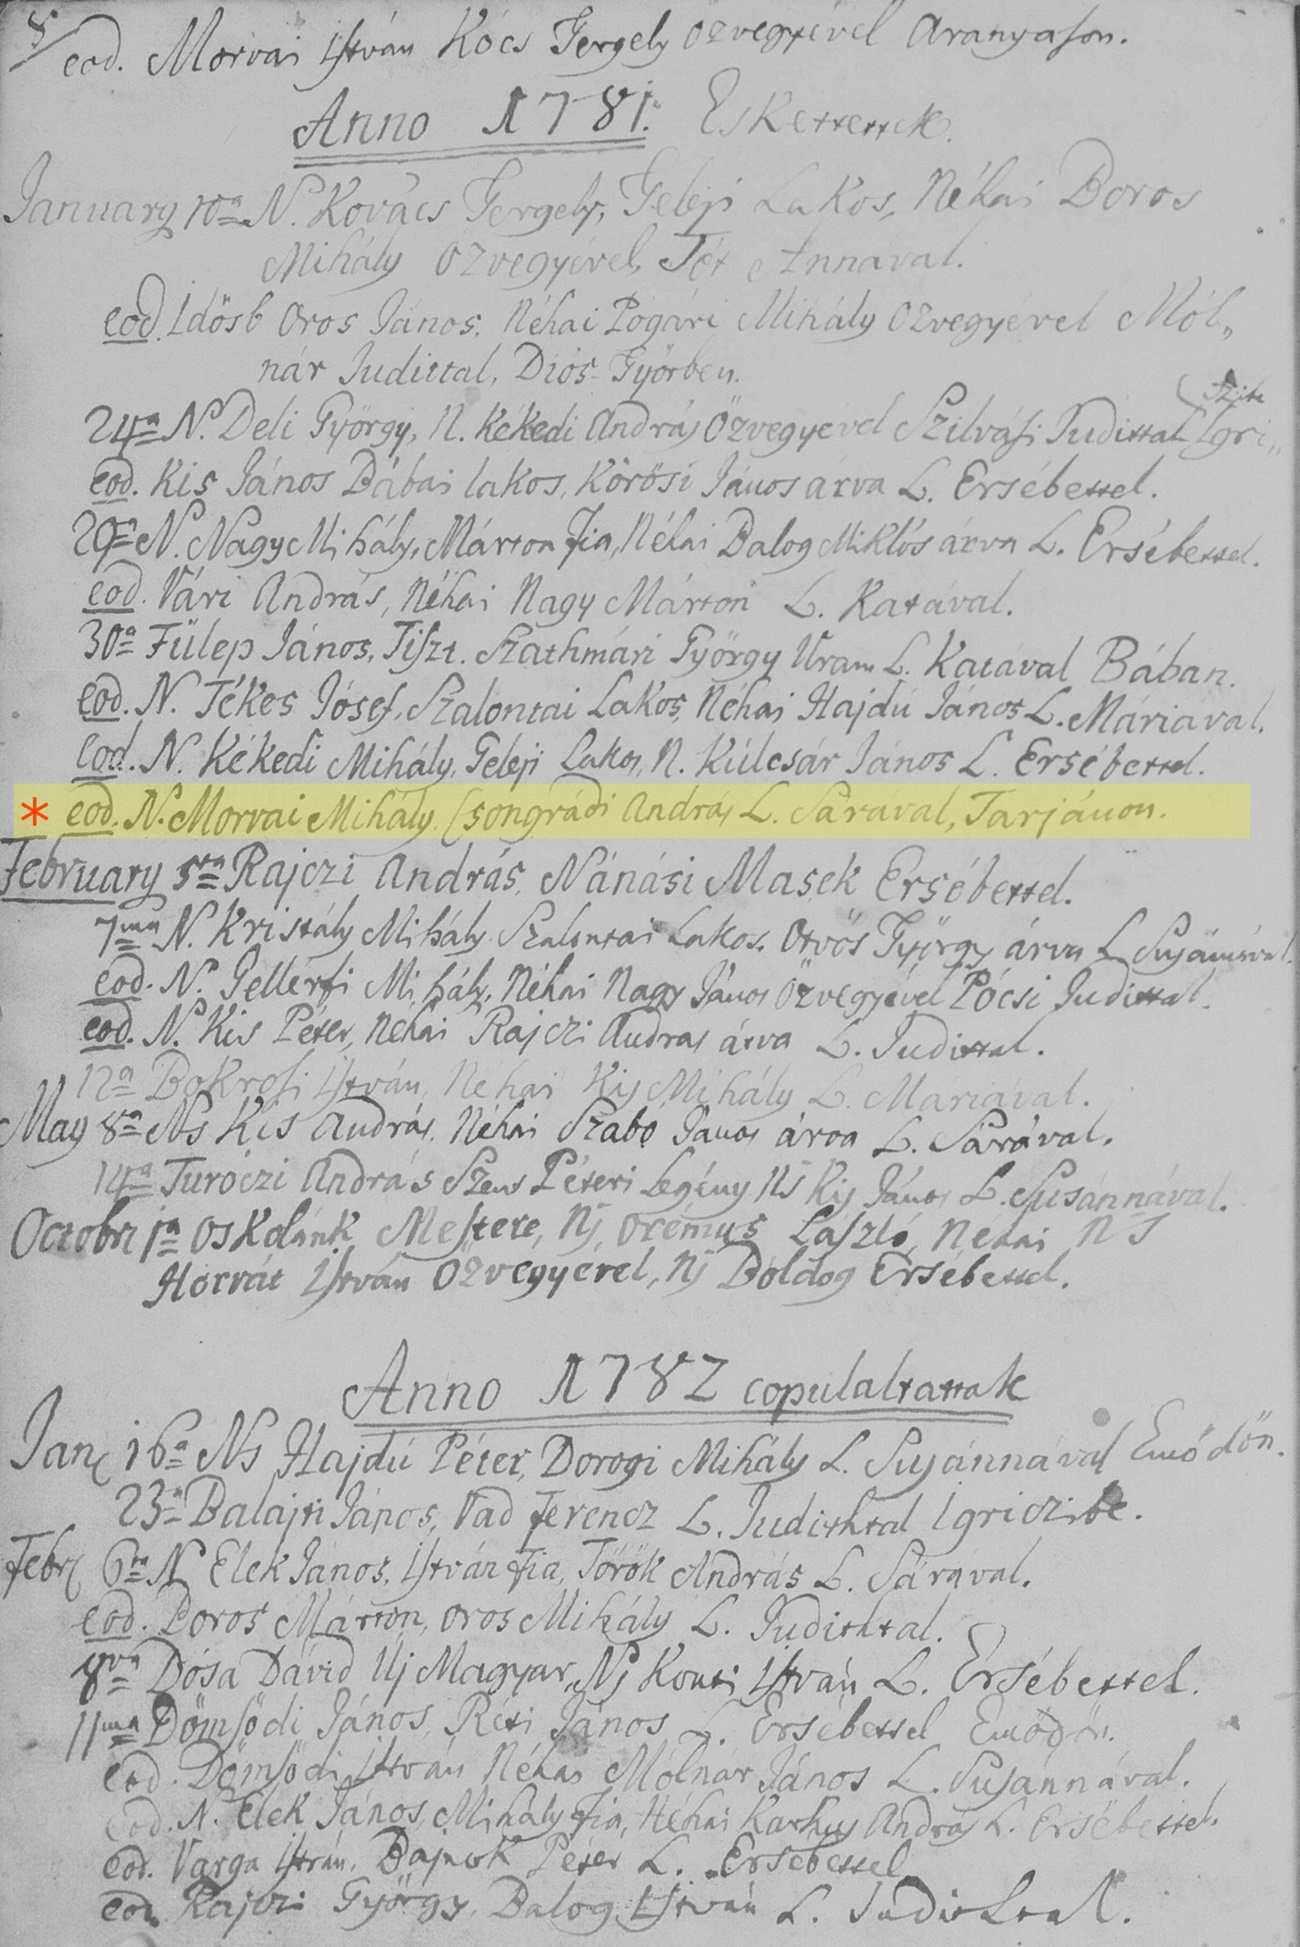 eod. Morvai István Kócs Gergely özvegyével Aranyason.
Anno 1781. Eskettettek.
January 10a N. Kovács Gergely, Geleji Lakos, Néhai Boros
Mihály özvegyével, Tót Annával.
eod. Idösb Oros János, Néhai Pógári Mihály Özvegyével Mól„
nár Judittal, Diós-Györben.
24a N. Deli György, N. Kékedi András Özvegyével Szilvási Judittal Igri„
eod. Kis János Bábai lakos, Körösi János árva L. Ersébettel.
29a N. Nagy Mihály, Márton fia, Néhai Balog Miklós árva L. Ersébettel.
eod. Vári András, Néhai Nagy Márton L. Katával.
30a Fülep János, Tiszt. Szathmári György Uram L. Katával Bában.
eod. N. Tékes Jósef, Szalontai Lakos, Néhai Hajdú János L. Máriával.
eod. N. Kékedi Mihály, Geleji Lakos, N. Kúlcsár János L. Ersébettel.
* eod. N. Morvai Mihály, Csongrádi András L. Sárával, Tarjánon.
February 5ta Rajczi András, Nánási Masek Ersébettel.
7ma N. Kristály Mihály Szalontai Lakos, Otvös György árva L. Susánával.
eod. N. Gellérfi Mihály, Néhai Nagy János Özvegyével Pócsi Judittal.
eod. N. Kis Péter, Néhai Rajczi András árva L. Judittal.
12a Bokrosi István, Néhai Kis Mihály L. Mariával.
May 8a Ns Kis András, Néhai Szabó János árva L. Sárával.
14a Turóczi András Szent Péteri Legény Ns Kis János L. Susánnával.
Octobr 1a Oskolánk Mestere, Ns, Orémus László, Néhai N S
Horvát István Özvegyével, Ns Boldog Ersébettel.
Anno 1782 copulaltattak
Jan 16a Ns Hajdú Péter, Dorogi Mihály L. Susánnával Emődön.
23a Balajti János, Vad Ferencz L. Judithtal Igriczibe.
Febr 6ta N Elek János, István fia, Török András L. Sárával.
eod. Boros Márton, Oros Mihály L. Judithtal.
8va Dósa Dávid Uj Magyar, Ns Konti István L. Ersébettel.
11ma Dömsödi János, Réti János L. Ersébettel Emődön.
eod. Dömsödi István Néhai Mólnár János L. Susánnával.
eod. N. Elek János, Mihály fia, Néhai András L. Ersébettel.
eod. Varga István, Péter L. Ersébettel
eod. Rajczi György, Balog István L. Judithtal.